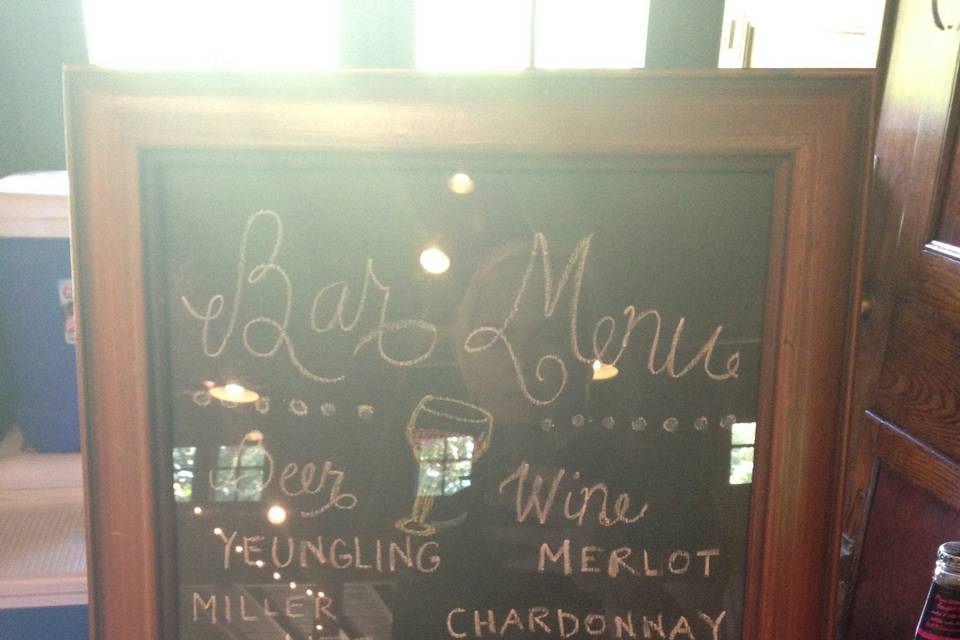 Bar Menu
Beer
Wine
YEUNGLING
MERLOT
MILLER
CHARDONNAY